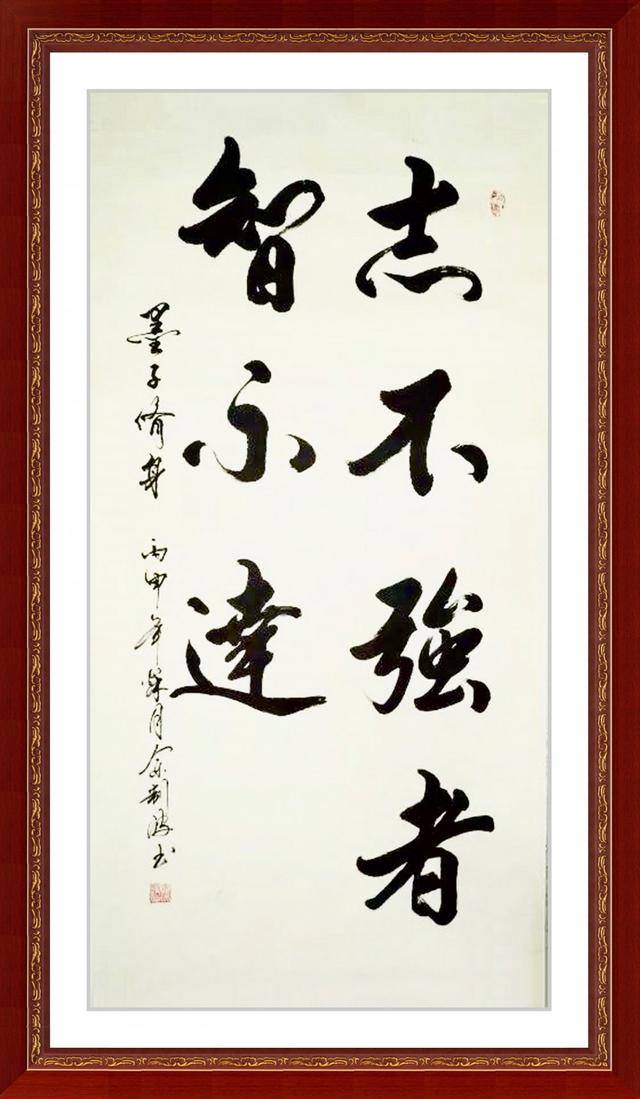 志不強者
智不達
墨子修身 丙申年 月余新波书